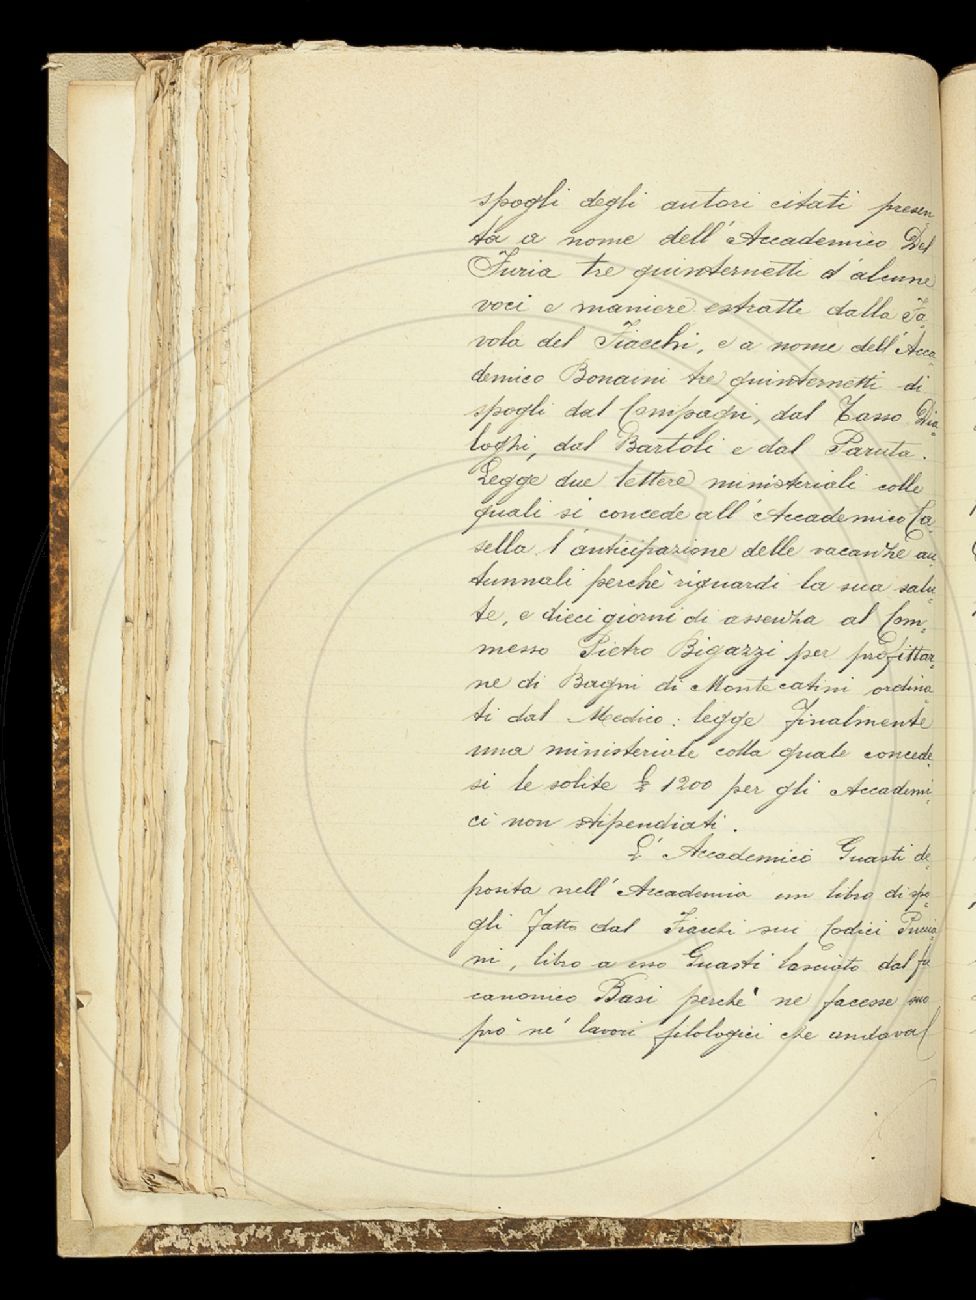 spogli degli autori citati presen
ta a nome dell'Accademico Del
Furia tre quinternetti d'alcune
voci e maniere estratte dalla Ta-
vola del Fiacchi, e a nome dell'Acca-
demico Bonaini tre quinternetti di
spogli dal Compagni, dal Tasso Dia-
loghi, dal Bartoli e dal Paruta.
Legge due lettere ministeriali colle
quali si concede all'Accademico Ca-
sella l'anticipazione delle vacanze au-
tunnali perchè riguardi la sua salu-
te, e dieci giorni di assenza al Com-
messo Pietro Bigazzi per profittar-
ne di Bagni di Montecatini ordina-
ti dal Medico: legge finalmente
una ministeriale colla quale concede-
si le solite £ 1200 per gli Accademi-
ci non stipendiati.
L'Accademico Guasti de-
posita nell'Accademia un libro di spo-
gli fatto dal Fiacchi sui Codici Puccia-
ni, libro a esso Guasti lasciato dal fu
canonico Basi perchè ne facesse suo
prò ne' lavori filologici che andava